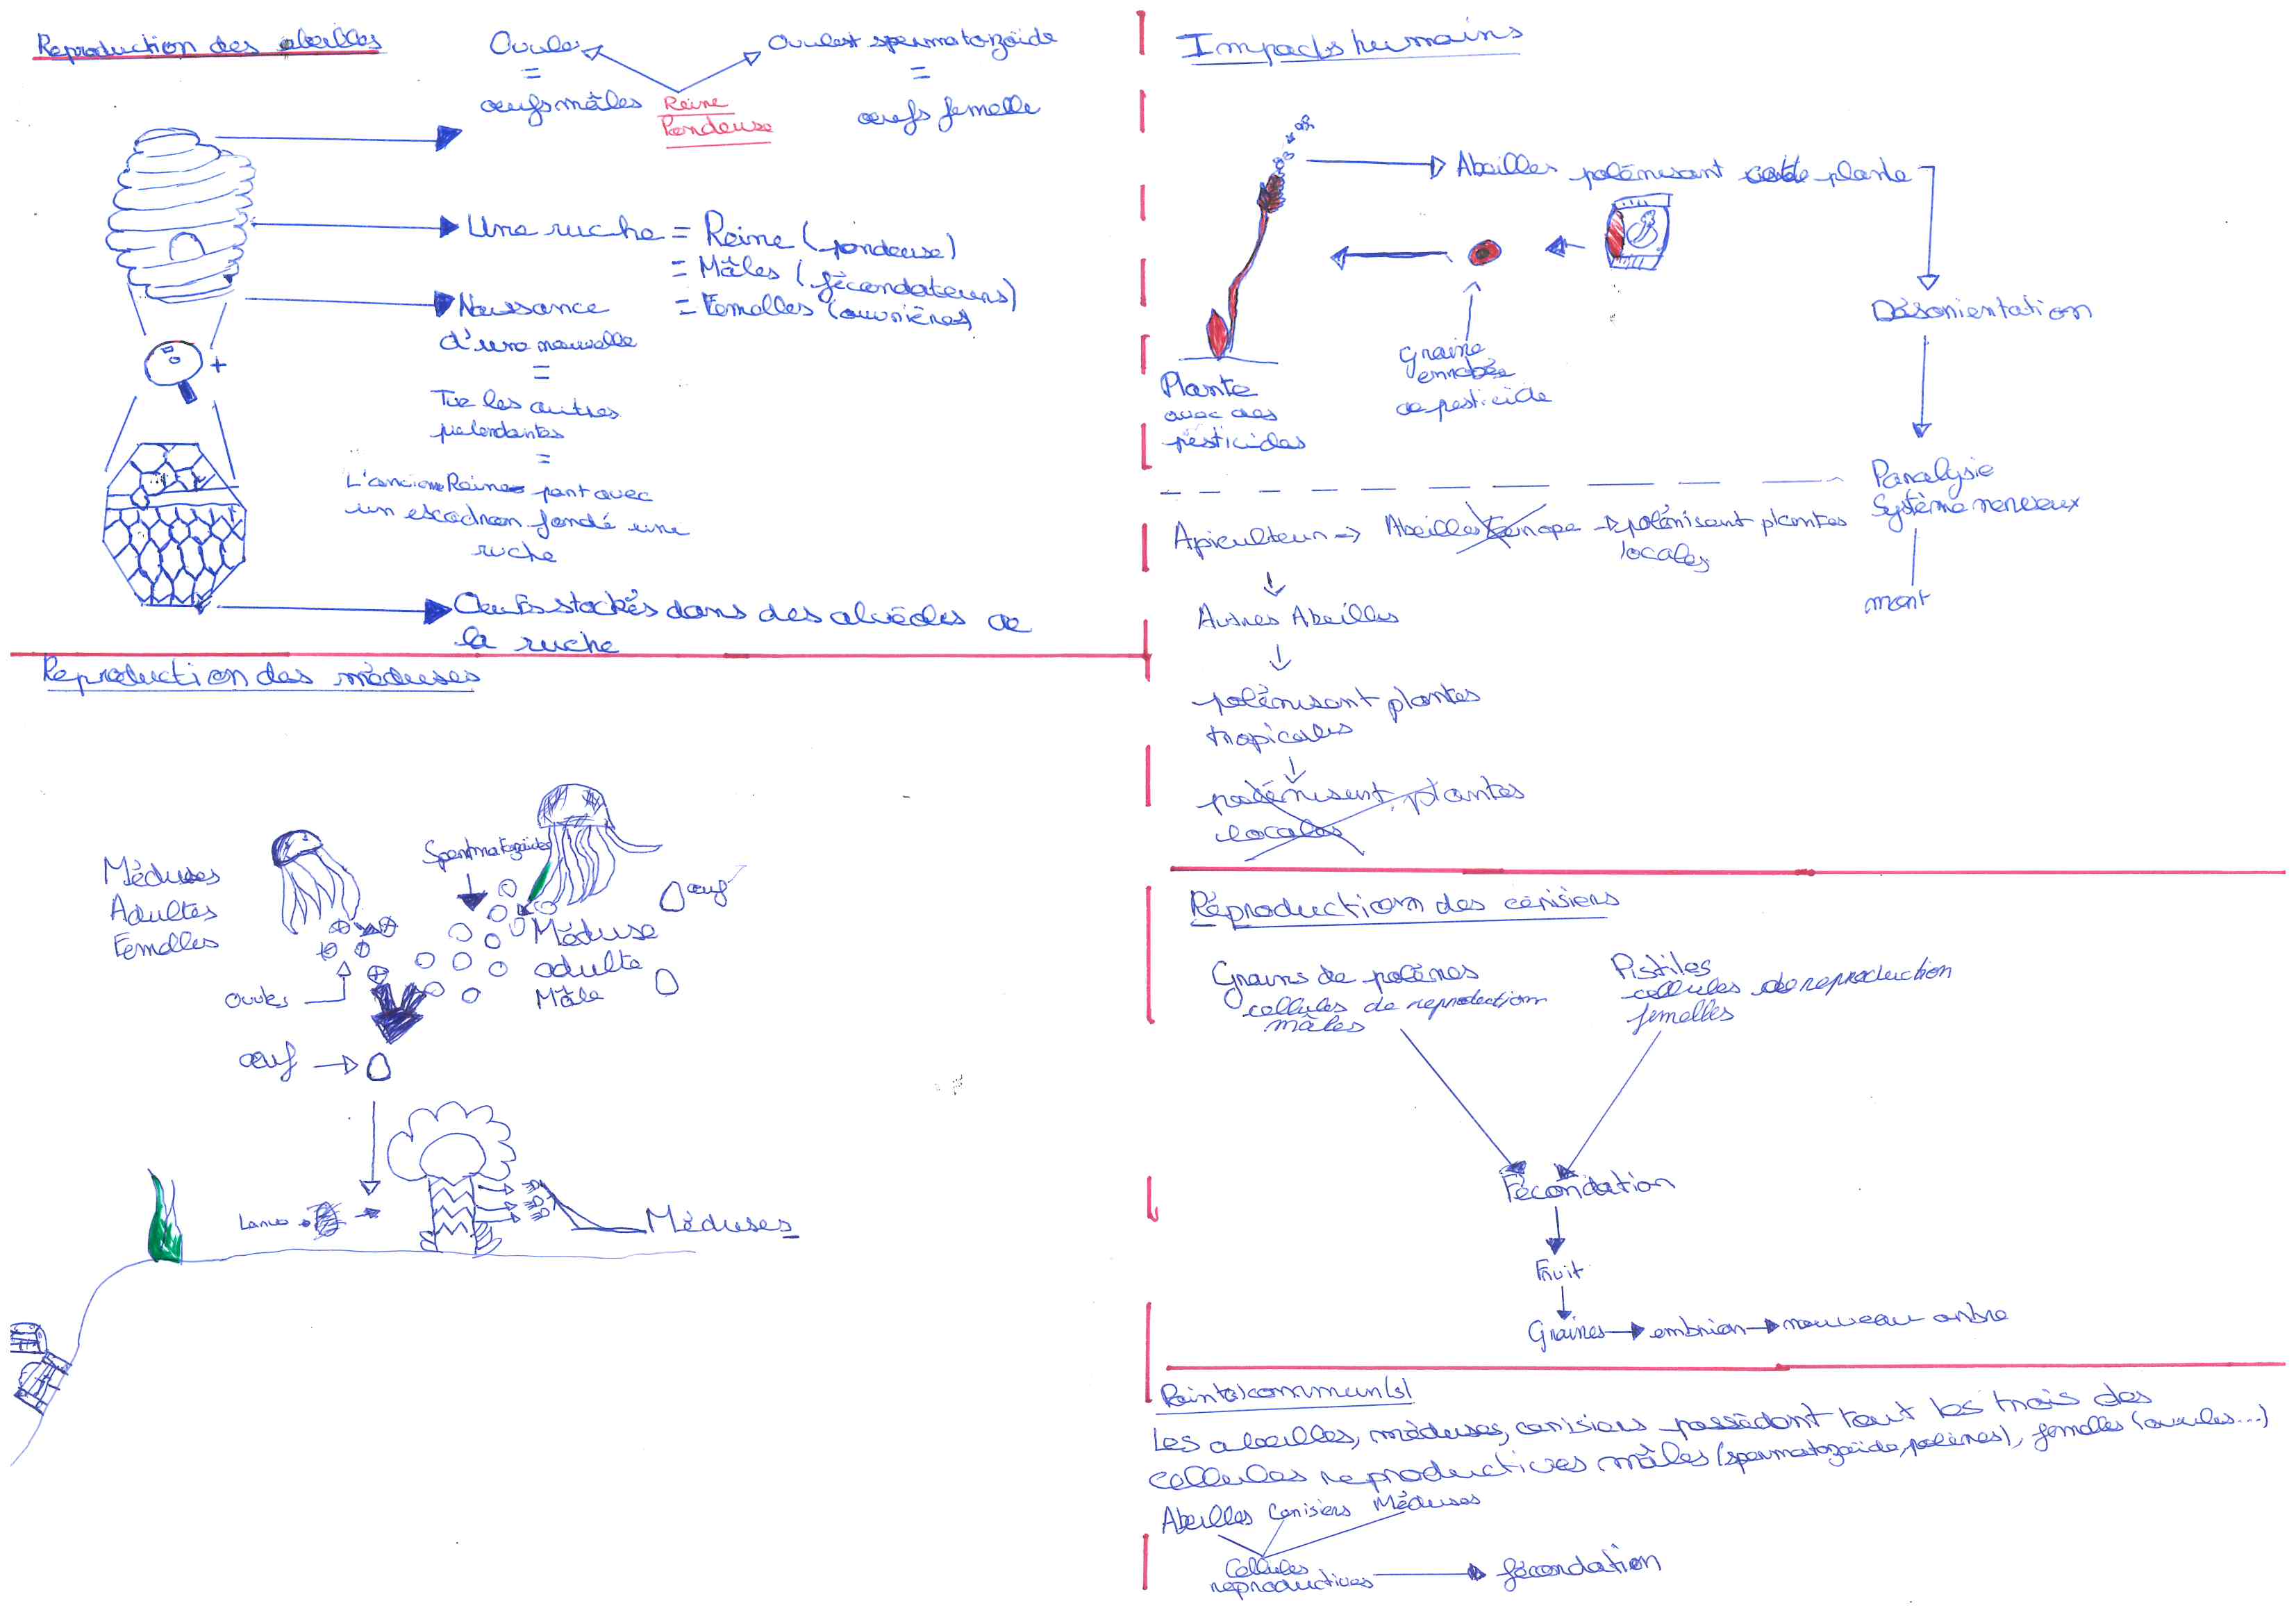 Reproduction des abeilles
Ovules
=
œufs mâles
Reine
Pondeuse
Ovules+ spermatozoïde
=
œufs femelle
Une ruche = Reine (pondeuse)
= Mâles (fécondateurs)
= Femelles (ouvrières)
Naissance
d'une nouvelle
=
Tue les autres
prétendantes
=
L'ancienne Reine part avec
un escadron fondé une
ruche
Oeufs stockés dans des alvéoles de
la ruche
Reproduction des méduses
Méduses
Adultes
Femelles
Spermatozoïdes
œuf
Méduse
adulte
Mâle
ovules
œuf
Larve
Méduses
Impacts humains
Abeilles polénisant cette plante
Désorientation
Paralysie
Système nerveux
mort
Graine
enrobée
de pesticide
Plante
avec des
pesticides
Apiculteur => Abeilles Europe -> polénisant plantes
locales
Autres Abeilles
polénisant plantes
tropicales
polénisent plantes
locales
Réproduction des cerisiers
Grains de polénes
cellules de reproduction
mâles
Pistiles
cellules de reproduction
femelles
Fécondation
Fruit
Graines embrion nouveau arbre
Point(s) commun(s)
Les abeilles, méduses, cerisiers possèdent tout les trois des
cellules reproductives mâles (spermatozoïde, polénes), femelles (ovules...)
Abeilles Cerisiers Méduses
Cellules
reproductives
fécondation